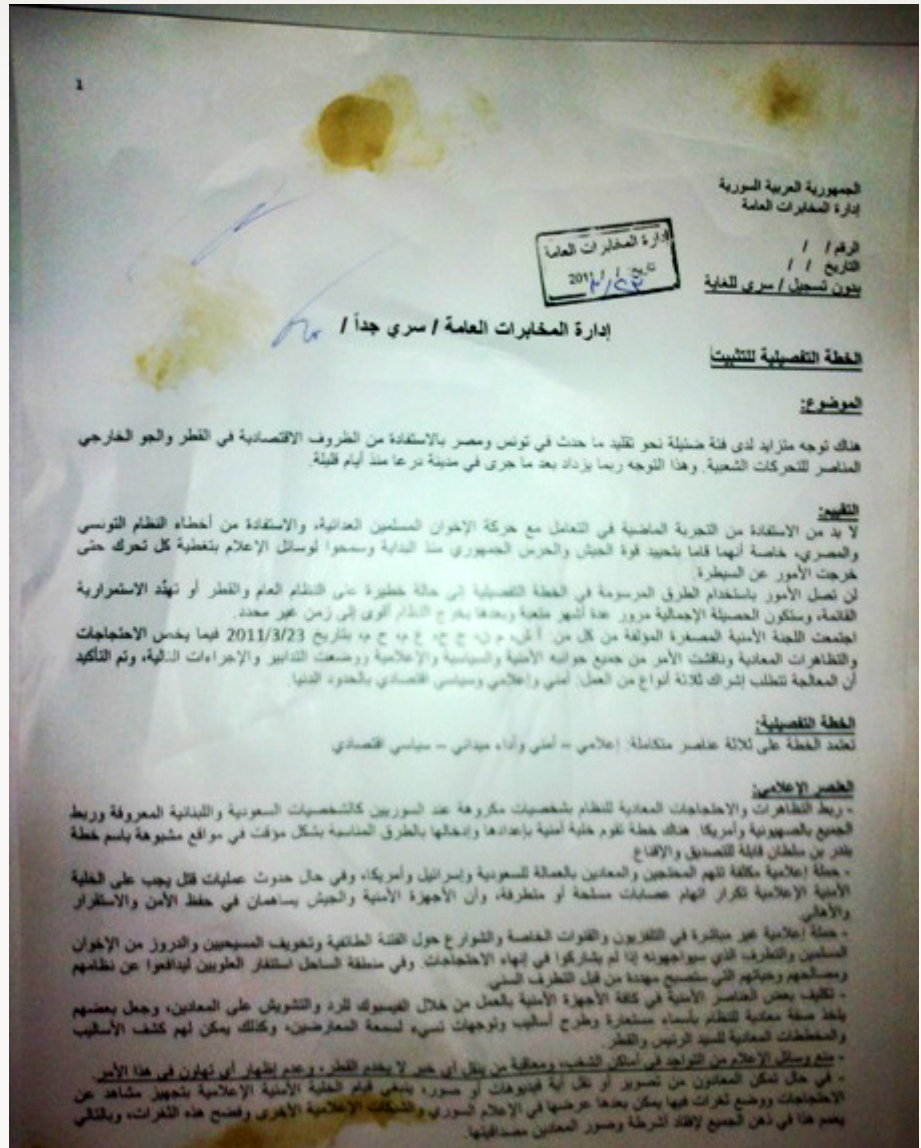 1
الجمهورية العربية السورية
إدارة المخابرات العامة
الرقم / /
التاريخ / /
بدون تسجيل / سري للغاية
إدارة المخابرات العامة
تاريخ / / 2011
إدارة المخابرات العامة / سري جداً /
الخطة التفصيلية للتثبيت
الموضوع:
هناك توجه متزايد لدى فئة ضئيلة نحو تقليد ما حدث في تونس ومصر بالاستفادة من الظروف الاقتصادية في القطر والجو الخارجي
المناصر للتحركات الشعبية. وهذا التوجه ربما يزداد بعد ما جرى في مدينة درعا منذ أيام قليلة.
التقييم:
لا بد من الاستفادة من التجربة الماضية في التعامل مع حركة الإخوان المسلمين العدائية، والاستفادة من أخطاء النظام التونسي
والمصري، خاصة أنهما قاما بتحييد قوة الجيش والحرس الجمهوري منذ البداية وسمحوا لوسائل الإعلام بتغطية كل تحرك حتى
خرجت الأمور عن السيطرة.
لن تصل الأمور باستخدام الطرق المرسومة في الخطة التفصيلية إلى حالة خطيرة على النظام العام والقطر أو تهدّد الاستمرارية
القائمة، وستكون الحصيلة الإجمالية مرور عدة أشهر متعبة وبعدها يخرج النظام أقوى إلى زمن غير محدد.
اجتمعت اللجنة الأمنية المصغرة المؤلفة من كل من بتاريخ 2011/3/23 فيما يخص الاحتجاجات
والتظاهرات المعادية وناقشت الأمر من جميع جوانبه الأمنية والسياسية والإعلامية ووضعت التدابير والإجراءات التالية، وتم التأكيد
أن المعالجة تتطلب إشراك ثلاثة أنواع من العمل: أمني وإعلامي وسياسي اقتصادي بالحدود الدنيا.
الخطة التفصيلية:
تعتمد الخطة على ثلاثة عناصر متكاملة: إعلامي – أمني وأداء ميداني – سياسي اقتصادي
العنصر الإعلامي:
- ربط التظاهرات والاحتجاجات المعادية للنظام بشخصيات مكروهة عند السوريين كالشخصيات السعودية واللبنانية المعروفة وربط
الجميع بالصهيونية وأمريكا. هناك خطة تقوم خلية أمنية بإعدادها وإدخالها بالطرق المناسبة بشكل مؤقت في مواقع مشبوهة باسم خطة
بندر بن سلطان قابلة للتصديق والإقناع.
- حملة إعلامية مكثفة تتهم المحتجين والمعادين بالعمالة للسعودية وإسرائيل وأمريكا، وفي حال حدوث عمليات قتل يجب على الخلية
الأمنية الإعلامية تكرار اتهام عصابات مسلحة أو متطرفة، وأن الأجهزة الأمنية والجيش يساهمان في حفظ الأمن والاستقرار
والأهالي.
- حملة إعلامية غير مباشرة في التلفزيون والقنوات الخاصة والشوارع حول الفتنة الطائفية وتخويف المسيحيين والدروز من الإخوان
المسلمين والتطرف الذي سيواجهونه إذا لم يشاركوا في إنهاء الاحتجاجات. وفي منطقة الساحل استنفار العلويين ليدافعوا عن نظامهم
ومصالحهم وحياتهم التي ستصبح مهددة من قبل التطرف السني.
- تكليف بعض العناصر الأمنية في كافة الأجهزة الأمنية بالعمل من خلال الفيسبوك للرد والتشويش على المعادين، وجعل بعضهم
يتخذ صفة معادية للنظام بأسماء مستعارة وطرح أساليب وتوجهات تسيء لسمعة المعارضين، وكذلك يمكن لهم كشف الأساليب
والمخططات المعادية للسيد الرئيس والقطر.
- منع وسائل الإعلام من التواجد في أماكن الشغب، ومعاقبة من ينقل أي خبر لا يخدم القطر، وعدم إظهار أي تهاون في هذا الأمر.
- في حال تمكن المعادون من تصوير أو نقل أية فيديوهات أو صور، ينبغي قيام الخلية الأمنية الإعلامية بتجهيز مشاهد عن
الاحتجاجات ووضع ثغرات فيها يمكن بعدها عرضها في الإعلام السوري والشبكات الإعلامية الأخرى وفضح هذه الثغرات، وبالتالي
يعمم هذا في ذهن الجميع لإفقاد أشرطة وصور المعادين مصداقيتها.